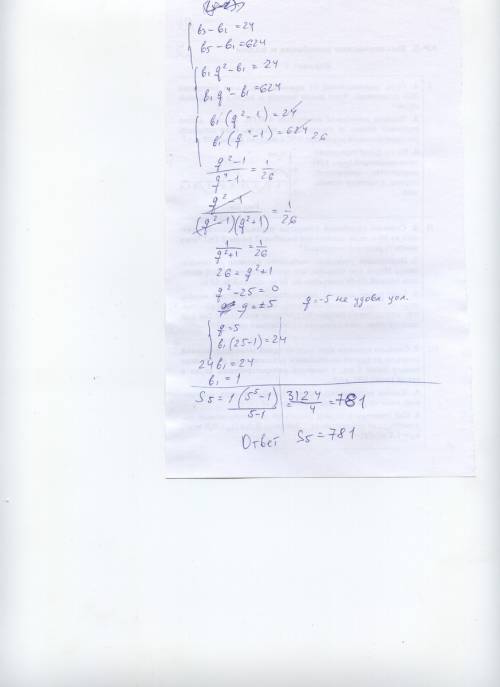 b₃-b₁=24
b₅-b₁=624
b₁q²-b₁=24
b₁q⁴-b₁=624
b₁(q²-1)=24
b₁(q⁴-1)=624 26
q²-1/q⁴-1=1/26
q²-1/(q²-1)(q²+1)=1/26
1/q²+1=1/26
26=q²+1
q²-25=0
q=±5 q=-5 не удовл усл.
q=5
b₁(25-1)=24
24b₁=24
b₁=1
S5=1(5⁵-1)/5-1=3124/4=781
Ответ S5=781